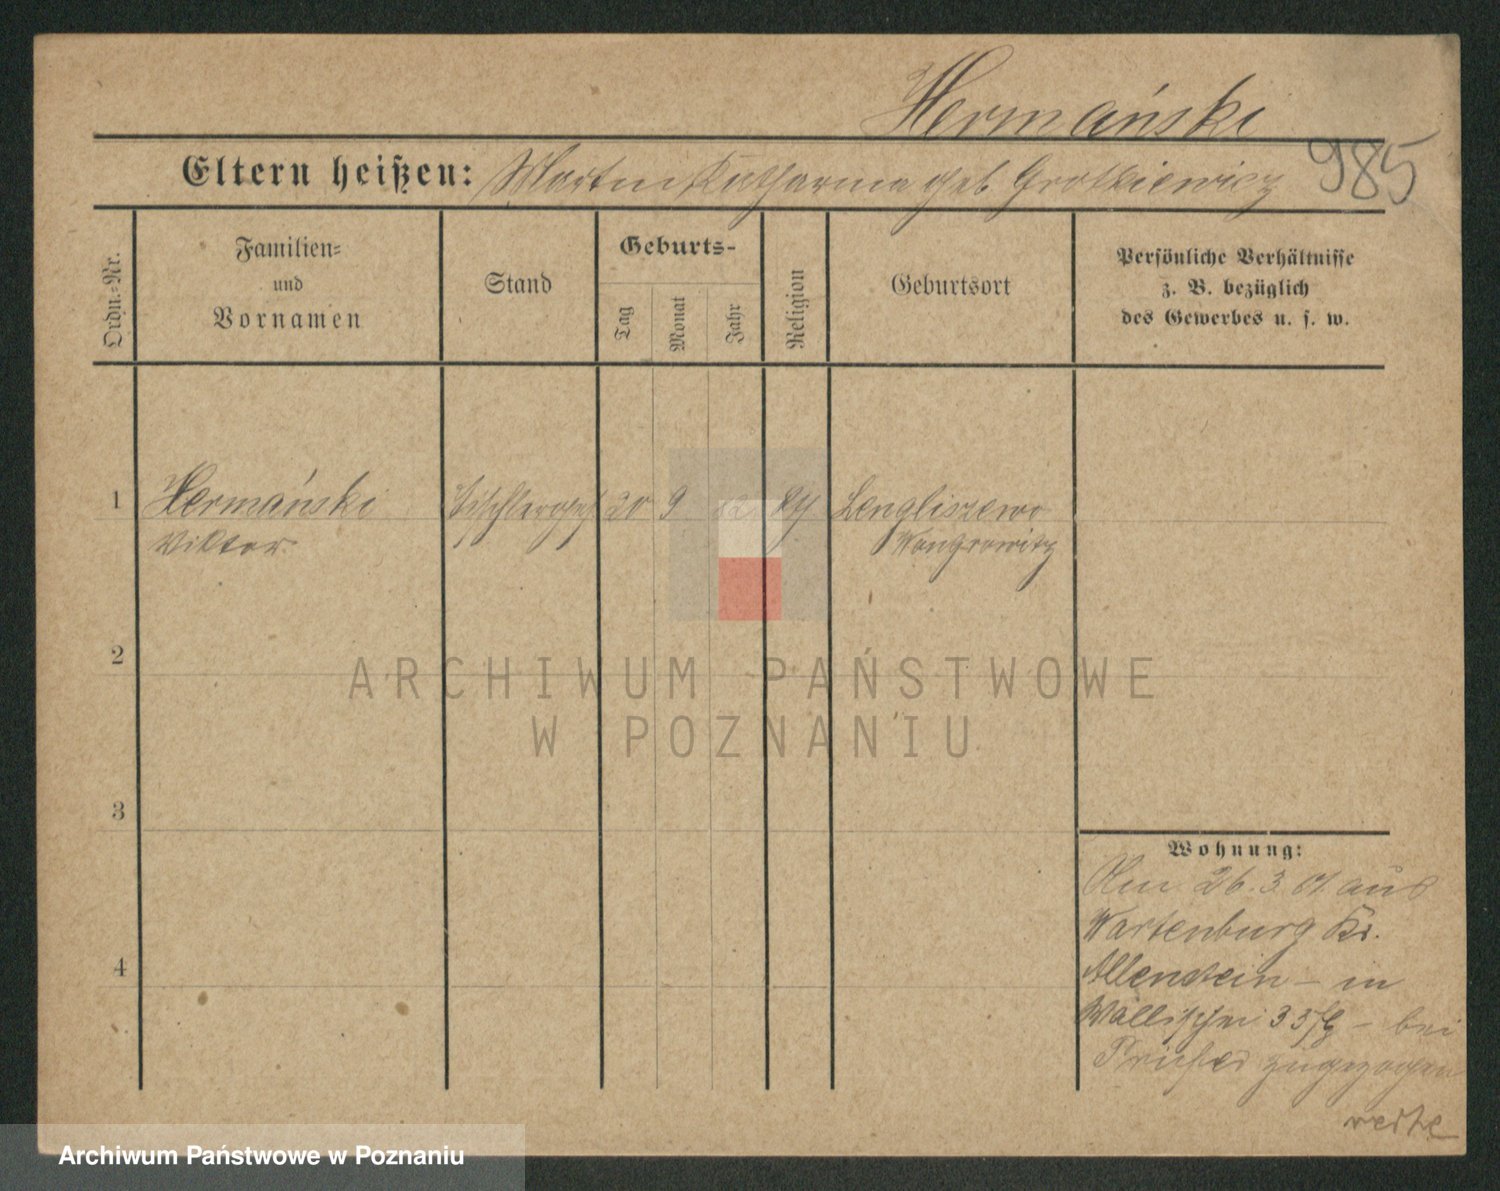 Hermański
Eltern heißen: Martin Katharina geb Grotkiewicz
985
Ordn.=Nr.
Familien=
und
Vornamen
Stand
Geburts-
Tag
Monat
Jahr
Religion
Geburtsort
Persönliche Verhältnisse
z. B. bezüglich
des Gewerbes u. s. w.
1 Hermański Tischlerges 20 9 82 Lengliszewo
Viktor Wongrowitz
2
ARCHIWUM PAŃSTWOWE
W POZNANIU
3
Wohnung:
Am 26.3.07. aus
Wartenburg Kr.
4
Allenstein - in
Wallischei 33 - bei
zugezogen
Archiwum Państwowe w Poznaniu